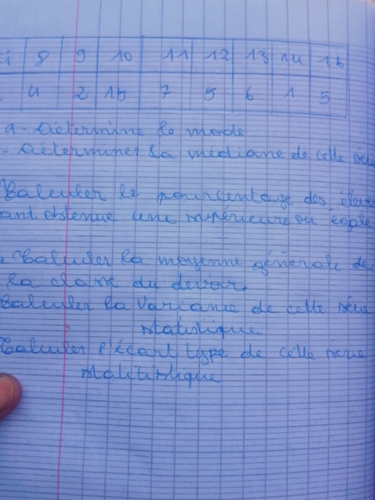 i 8 9 10 11 12 13 14 15
4 2 15 7 5 6 1 5
a - Determine le mode
- Determiner la médiane de celle série
Calculer le pourcentage des élèves
ant obtenue une supérieure ou egale
Calculer la moyenne générale de
la classe du devoir,
Calculer la Variance de celle série
statistique
Calculer l'écart type de celle série
statistique